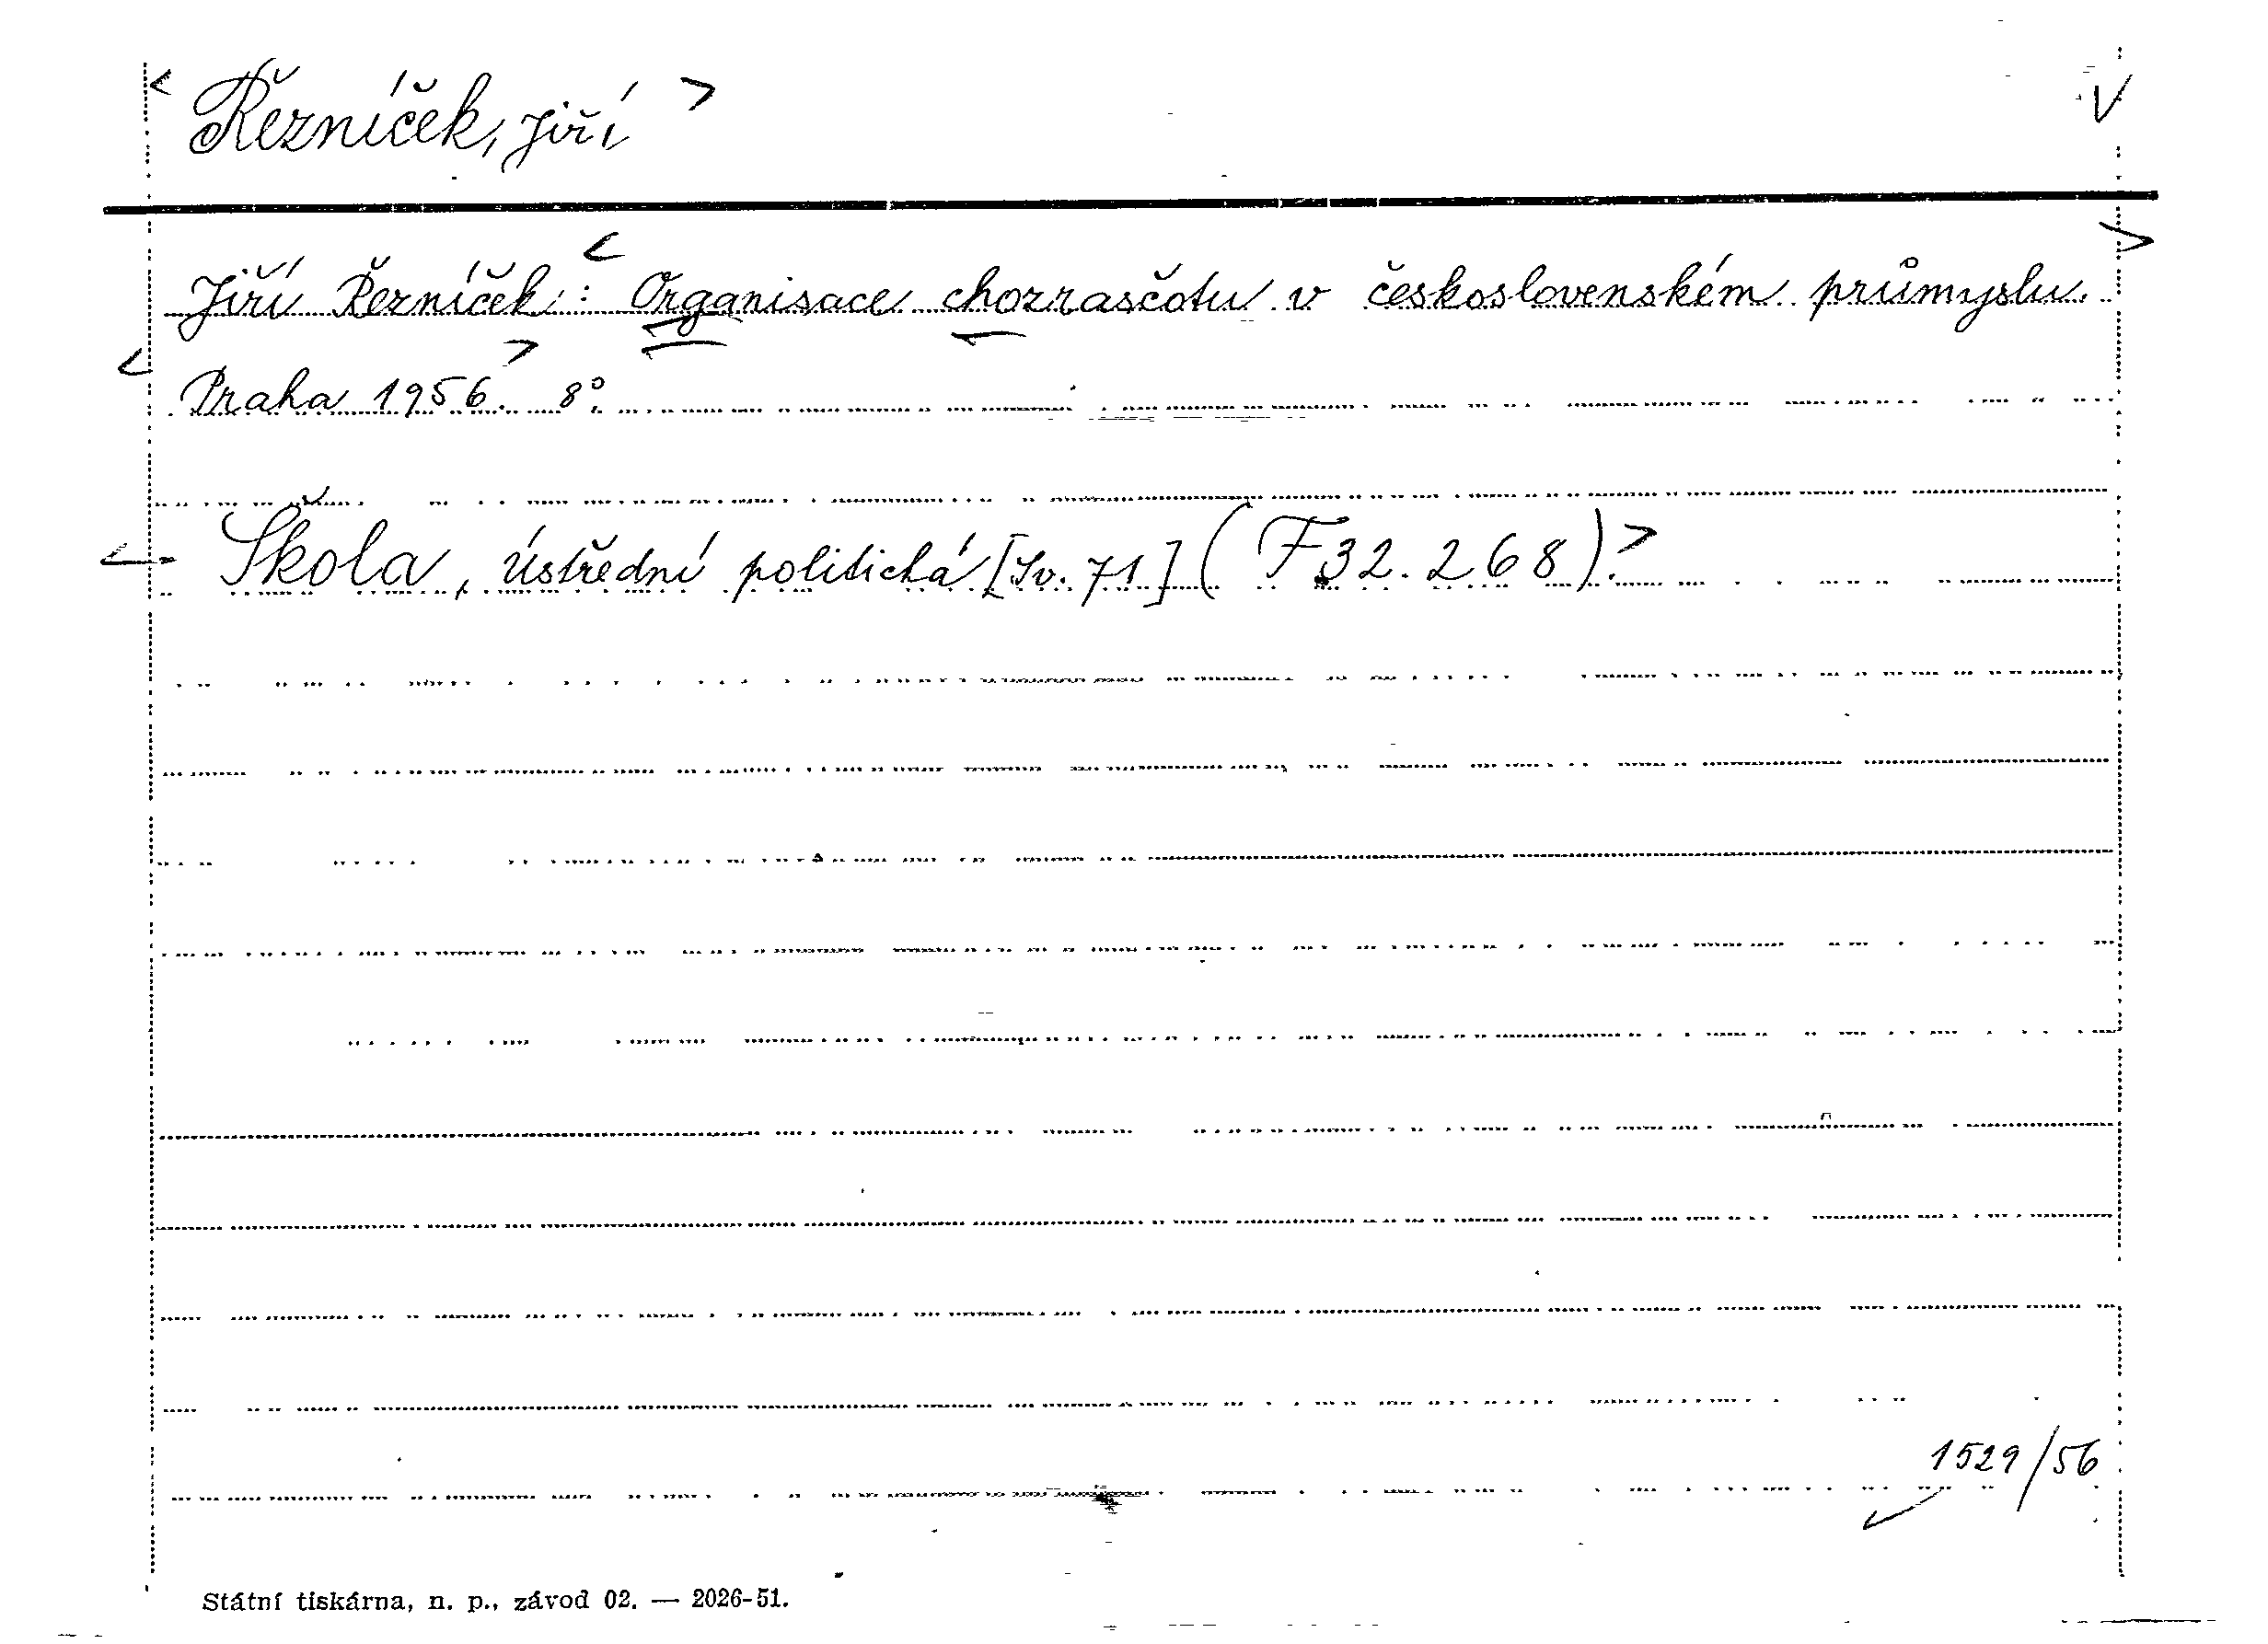 < Řezníček, Jiří > V
Jiří Řezníček: < Organisace chozrasčotu v československém průmyslu. >
< Praha 1956. > 8°.
< Škola, ústřední politická [Sv. 71] (F 32.268). >
1529/56
Státní tiskárna, n. p., závod 02. — 2026-51.